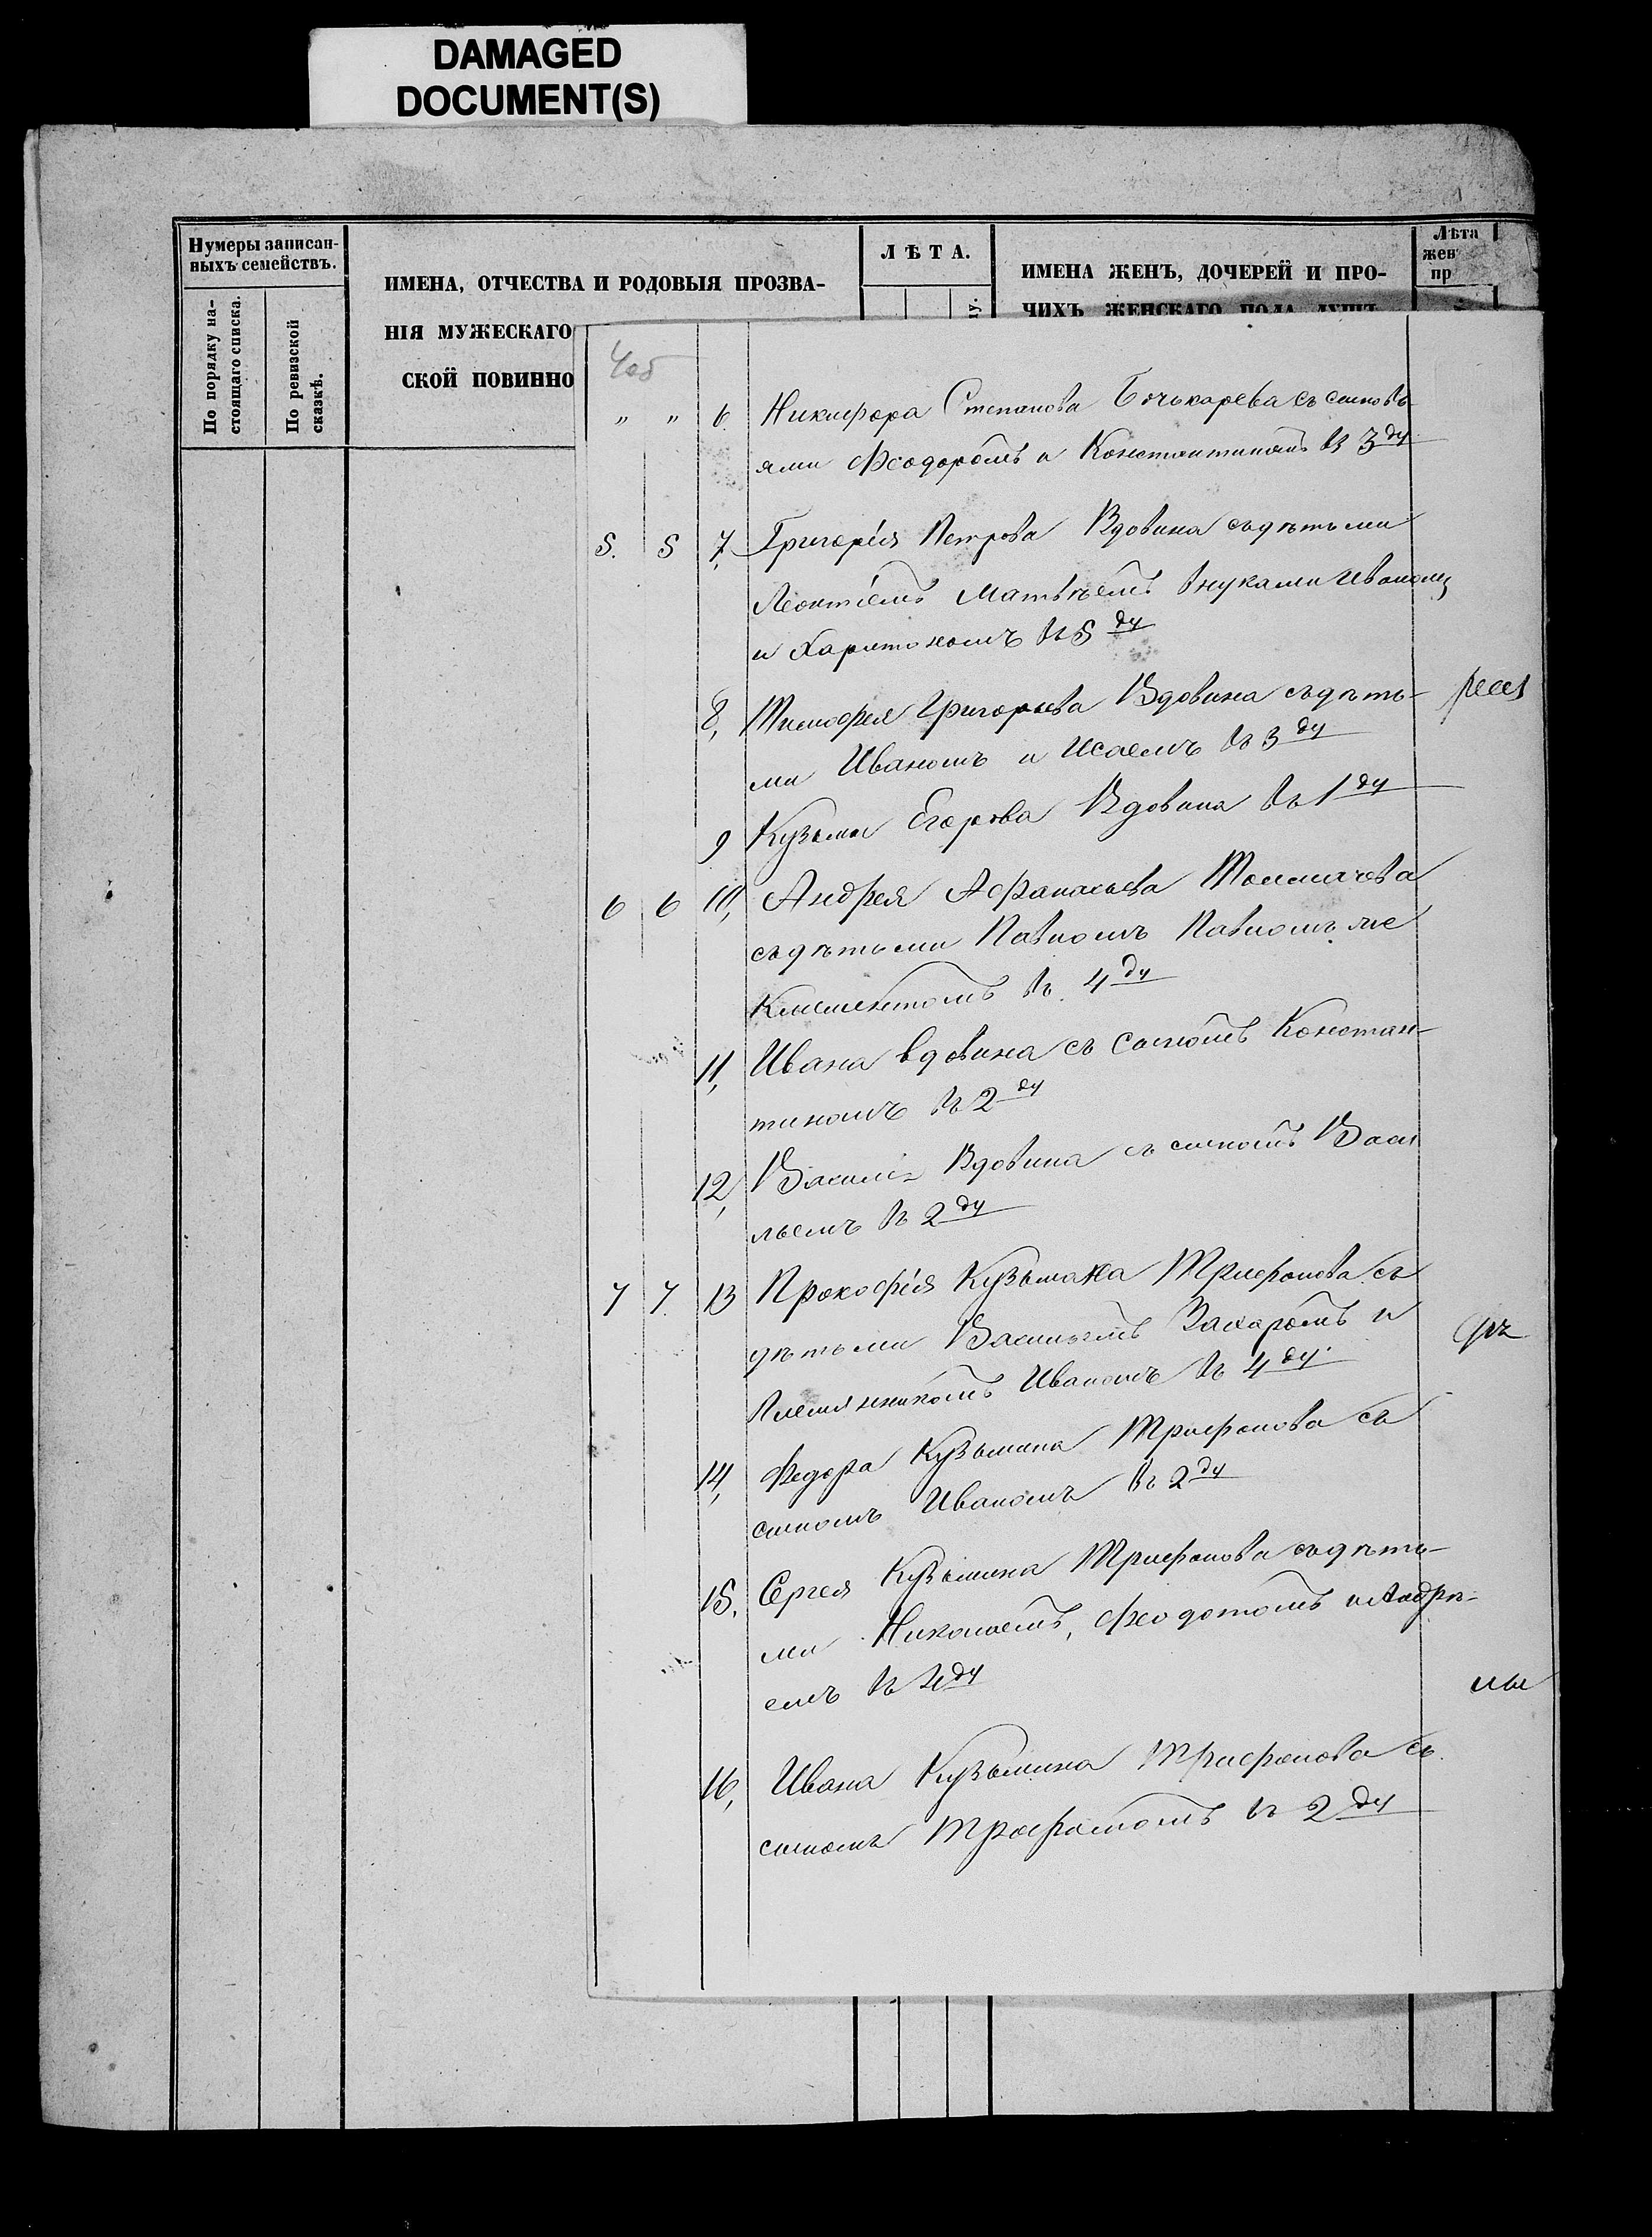 DAMAGED
DOCUMENT(S)
Нумеры записан-
ныхъ семействъ.
По порядку на-
стоящаго списка.
По ревизской
сказкѣ.
ИМЕНА, ОТЧЕСТВА И РОДОВЫЯ ПРОЗВА-
НІЯ МУЖЕСКАГО
СКОЙ ПОВИННО
ЛѢТА.
ИМЕНА ЖЕНЪ, ДОЧЕРЕЙ И ПРО-
ЧИХЪ ЖЕНСКАГО ПОЛА ДУШЪ
Лѣта
жен
пр
" " 6. Никифора Степанова Бочькарева съ сыновь-
ями Феодоромъ и Константиномъ въ 3 ду.
5. 5 7, Григорія Петрова Вдовина съ дѣтьми
Леонтіемъ Матвѣемъ внуками Иваномъ
и Харитономъ въ 5 ду
8, Тимофея Григорьева Вдовина съ дѣть-
ми Иваномъ и Исаемъ въ 3 ду
9 Кузьмы Егорова Вдовина въ 1 ду
6 6 10, Андрея Афанасьева Толмачева
съ дѣтьми Павломъ Павломъ же
Климентомъ въ 4 ду
11, Ивана Вдовина съ сыномъ Констан-
тиномъ въ 2 ду
12, Василія Вдовина съ сыномъ Васи
льемъ въ 2 ду
7 7. 13 Прокофія Кузьмина Трифонова съ
дѣтьми Васильемъ Захаромъ и
племянникомъ Иваномъ въ 4 ду.
14, Федора Кузьмина Трифонова съ
сыномъ Иваномъ въ 2 ду
15. Сергея Кузьмина Трифонова съ дѣть-
ми Николаемъ, Феодотомъ и Андрѣ-
емъ въ 4 ду
16, Ивана Кузьмина Трифонова съ
сыномъ Трофимомъ въ 2 ду